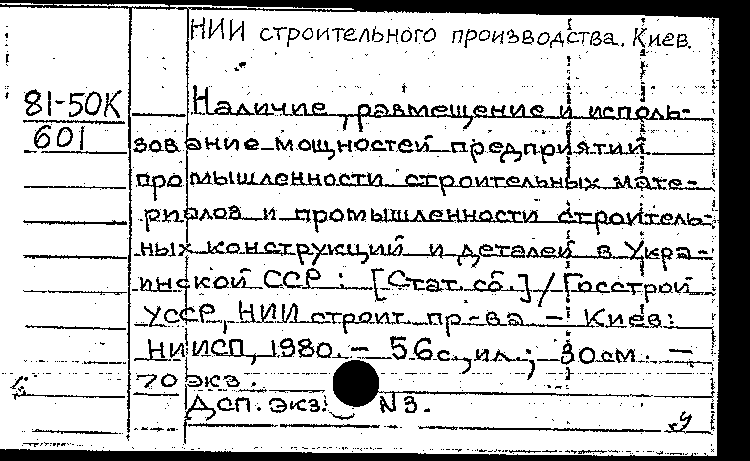 НИИ строительного производства. Киев.
81-50К
601
Наличие, размещение и исполь-
зование мощностей предприятий
промышленности строительных мате-
риалов и промышленности строитель-
ных конструкций и деталей в Укра-
инской ССР : [Стат. сб.] / Госстрой
УССР, НИИ строит. пр-ва – Киев:
НИИСП, 1980. – 56 с., ил.; 30 см. –
70 экз.
Дсп. экз. N 3.
у